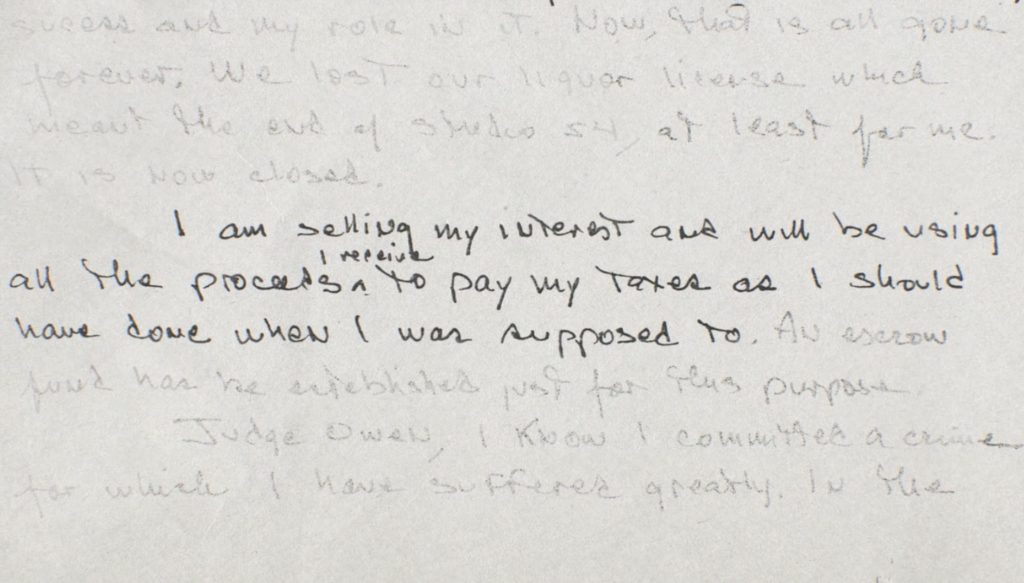 sucess and my role in it. Now, that is all gone
forever. We lost our liquor license which
meant the end of Studio 54, at least for me.
It is now closed.
I am selling my interest and will be using
I receive
all the proceeds ^ to pay my taxes as I should
have done when I was supposed to. An escrow
fund has be established just for this purpose.
Judge Owen, I know I committed a crime
for which I have suffered greatly. In the